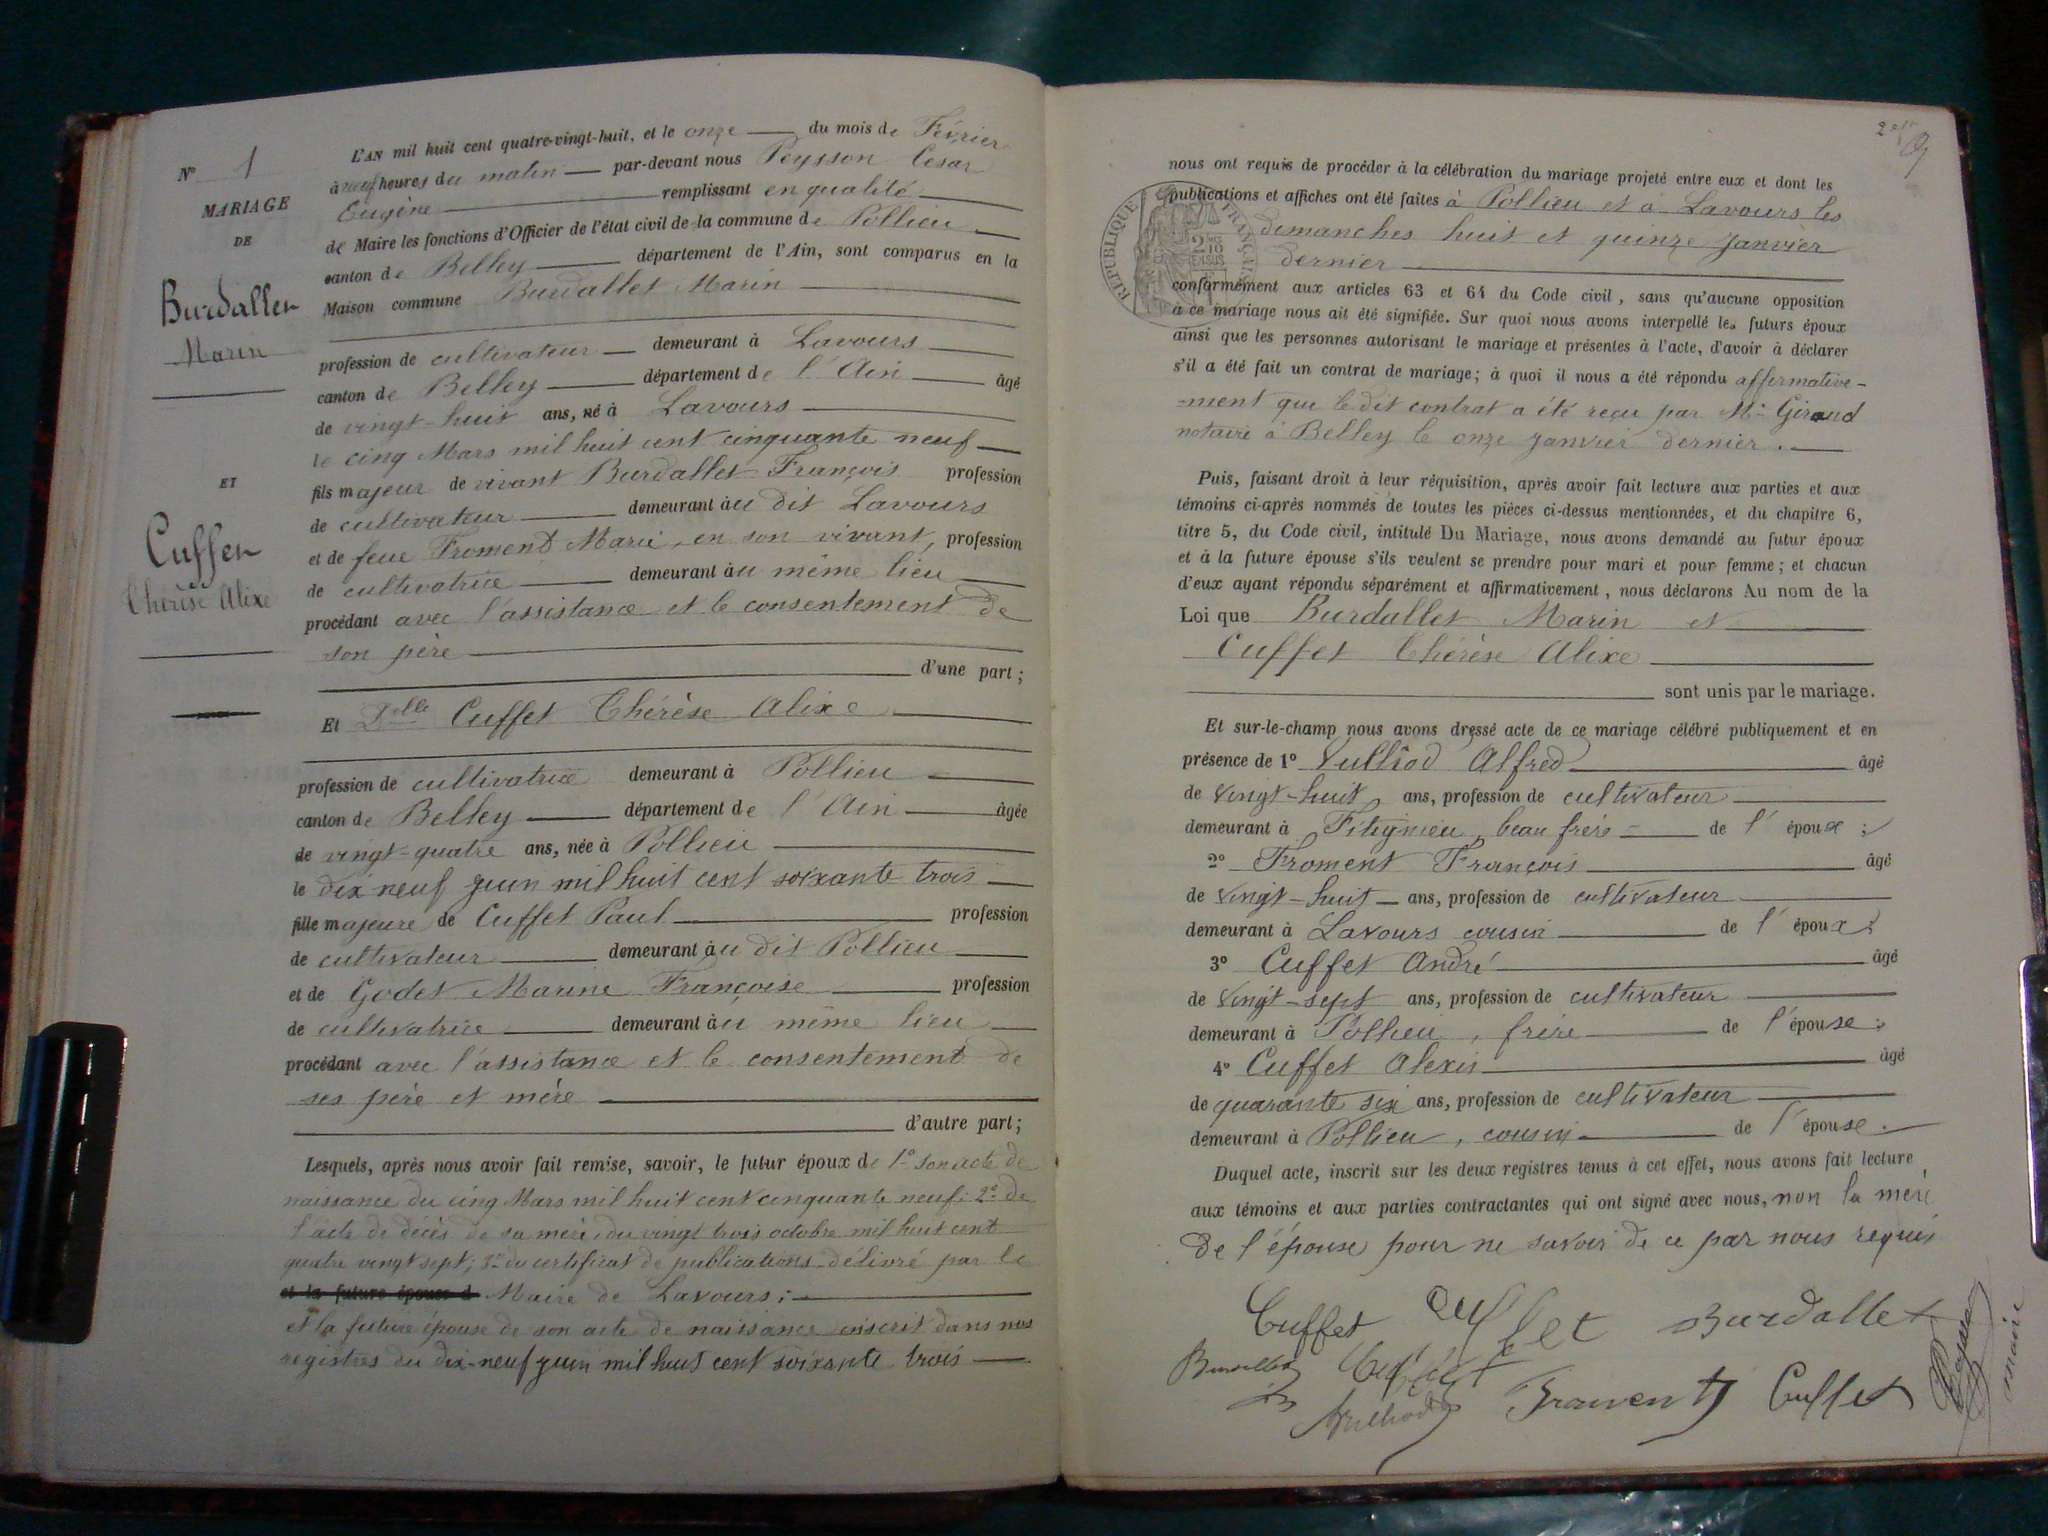 N° 1
MARIAGE
DE
Burdallet
Marin
ET
Cuffet
Thérèse Alixe
L'AN mil huit cent quatre-vingt-huit, et le onze du mois de Février
à neuf heures du matin par-devant nous Peysson César
Eugène remplissant en qualité
de Maire les fonctions d'Officier de l'état civil de la commune de Pollieu
canton de Belley département de l'Ain, sont comparus en la
Maison commune Burdallet Marin
profession de cultivateur demeurant à Lavours
canton de Belley département de l'Ain âgé
de vingt-huit ans, né à Lavours
le cinq Mars mil huit cent cinquante neuf
fils majeur de vivant Burdallet François profession
de cultivateur demeurant au dit Lavours
et de feue Froment Marie, en son vivant, profession
de cultivatrice demeurant au même lieu
procédant avec l'assistance et le consentement de
son père
d'une part ;
Et Delle Cuffet Thérèse Alixe
profession de cultivatrice demeurant à Pollieu
canton de Belley département de l'Ain âgée
de vingt-quatre ans, née à Pollieu
le dix neuf juin mil huit cent soixante trois
fille majeure de Cuffet Paul profession
de cultivateur demeurant au dit Pollieu
et de Godet Marine Françoise profession
de cultivatrice demeurant au même lieu
procédant avec l'assistance et le consentement de
ses père et mère
d'autre part ;
Lesquels, après nous avoir fait remise, savoir, le futur époux de 1° son acte de
naissance du cinq Mars mil huit cent cinquante neuf; 2° de
l'acte de décès de sa mère, du vingt trois octobre mil huit cent
quatre vingt sept; 3° du certificat de publications délivré par le
et la future épouse d Maire de Lavours ;
et la future épouse de son acte de naissance inscrit dans nos
registres du dix-neuf juin mil huit cent soixante trois
nous ont requis de procéder à la célébration du mariage projeté entre eux et dont les
publications et affiches ont été faites à Pollieu et à Lavours les
dimanches huit et quinze janvier
dernier
RÉPUBLIQUE FRANÇAISE
conformément aux articles 63 et 64 du Code civil, sans qu'aucune opposition
à ce mariage nous ait été signifiée. Sur quoi nous avons interpellé les futurs époux
ainsi que les personnes autorisant le mariage et présentes à l'acte, d'avoir à déclarer
s'il a été fait un contrat de mariage; à quoi il nous a été répondu affirmative-
-ment que le dit contrat a été reçu par Me Giraud
notaire à Belley le onze janvier dernier.
Puis, faisant droit à leur réquisition, après avoir fait lecture aux parties et aux
témoins ci-après nommés de toutes les pièces ci-dessus mentionnées, et du chapitre 6,
titre 5, du Code civil, intitulé Du Mariage, nous avons demandé au futur époux
et à la future épouse s'ils veulent se prendre pour mari et pour femme ; et chacun
d'eux ayant répondu séparément et affirmativement, nous déclarons Au nom de la
Loi que Burdallet Marin et
Cuffet Thérèse Alixe
sont unis par le mariage.
Et sur-le-champ nous avons dressé acte de ce mariage célébré publiquement et en
présence de 1° Vulliod Alfred âgé
de vingt-huit ans, profession de cultivateur
demeurant à Fitignieu, beau frère de l'époux ;
2° Froment François âgé
de vingt-huit ans, profession de cultivateur
demeurant à Lavours cousin de l'époux ;
3° Cuffet André âgé
de vingt-sept ans, profession de cultivateur
demeurant à Pollieu, frère de l'épouse ;
4° Cuffet Alexis âgé
de quarante six ans, profession de cultivateur
demeurant à Pollieu, cousin de l'épouse.
Duquel acte, inscrit sur les deux registres tenus à cet effet, nous avons fait lecture
aux témoins et aux parties contractantes qui ont signé avec nous, non la mère
de l'épouse pour ne savoir de ce par nous requis
Cuffet Cuffet Burdallet
Burdallet Cuffet
Vulliod Froment Cuffet
Peysson
maire